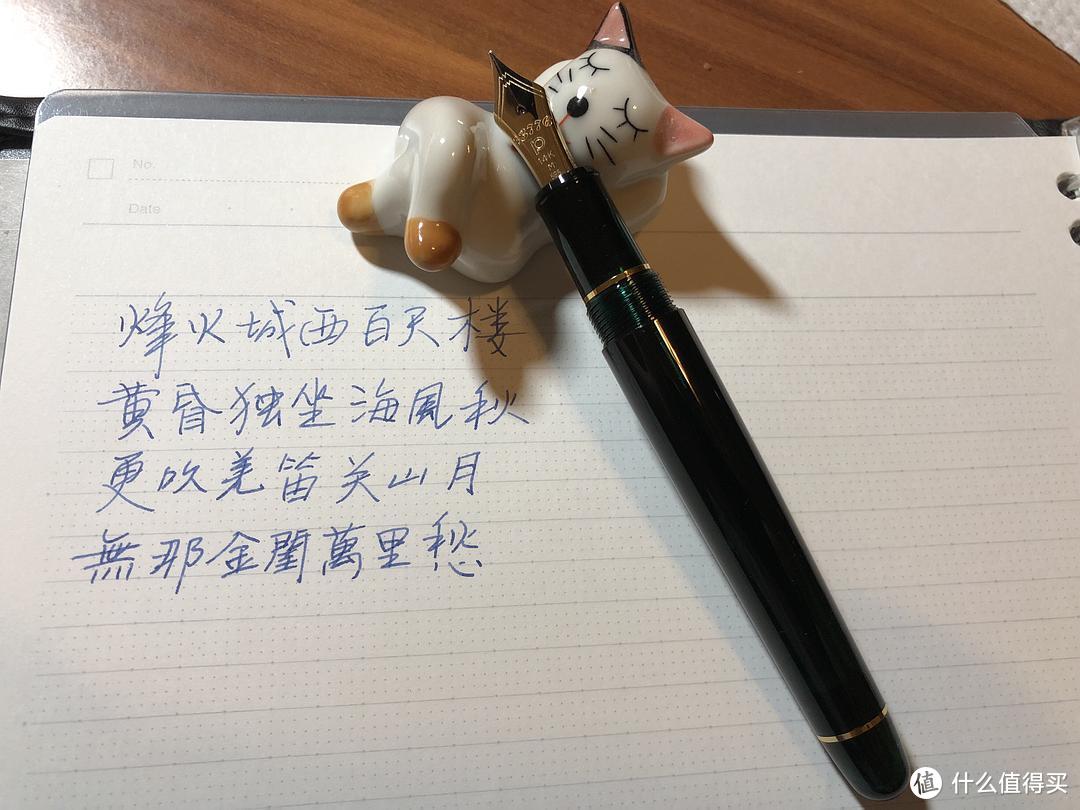 No.
Date
3776
14K
M
烽火城西百尺楼
黄昏独坐海風秋
更吹羌笛关山月
無那金閨萬里愁
值 什么值得买